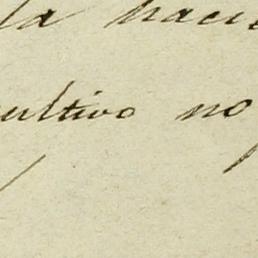 la hacie
cultivo no